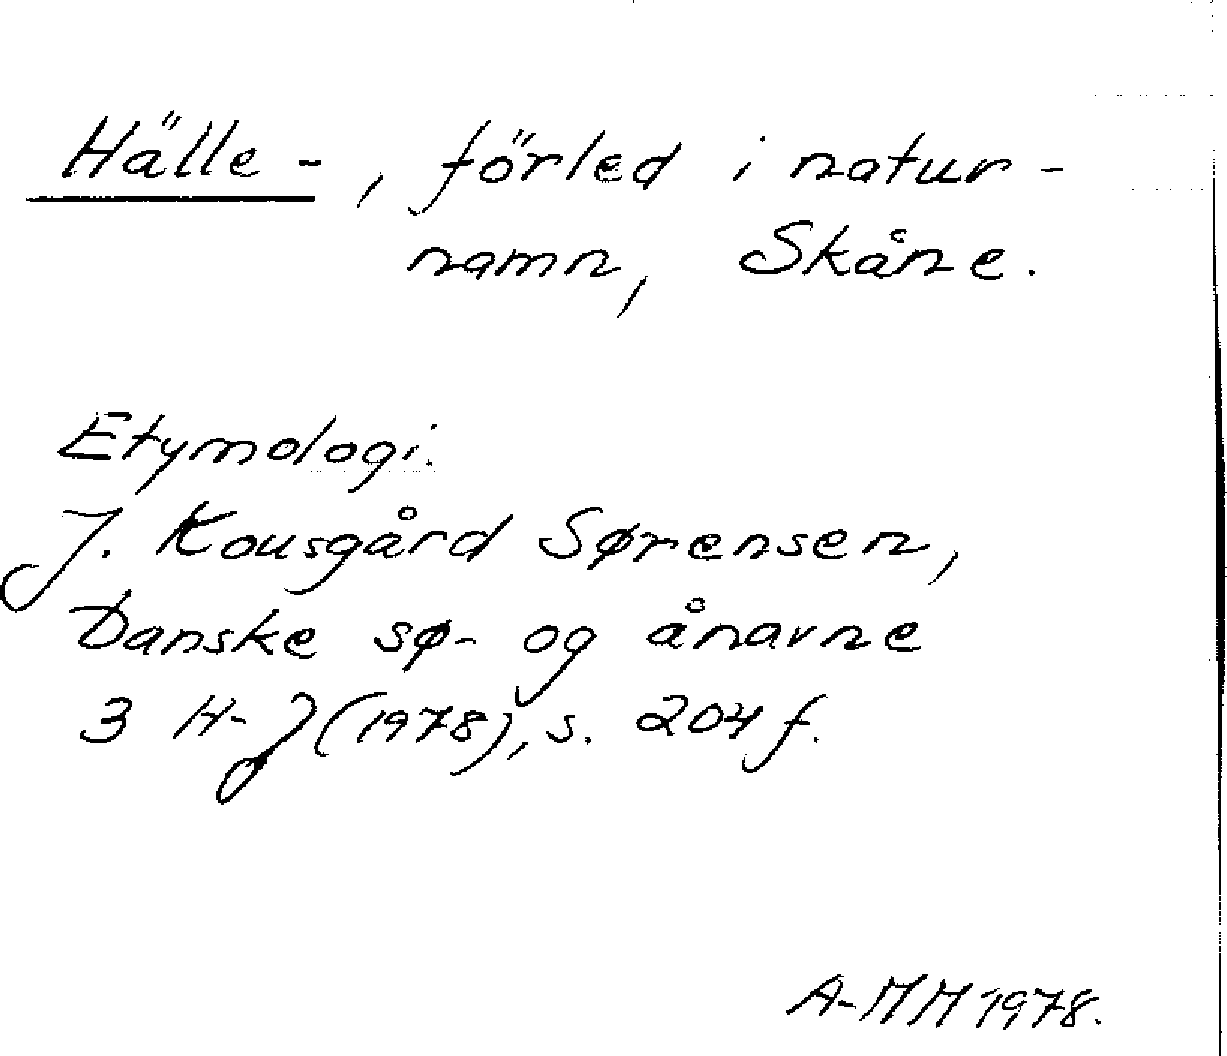 Hälle-, förled i natur-
namn, Skåne.
Etymologi.
J. Kousgård Sørensen,
Danske sø- og ånavne
3 H-J (1978), s. 204 f.
A-MM 1978.